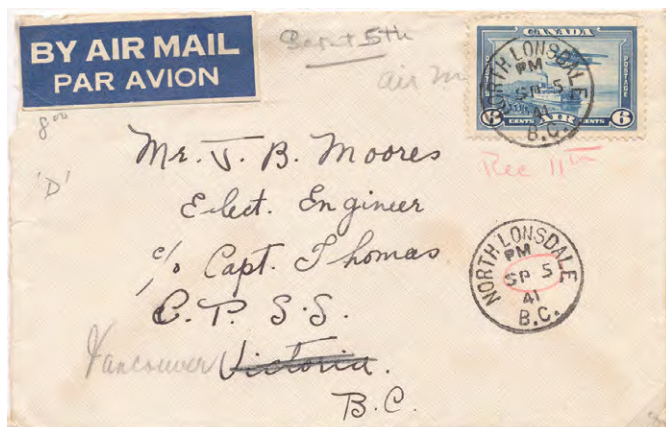 BY AIR MAIL
PAR AVION
5th
air m
CANADA
POSTAGE
POSTAGE
6 CENTS AIR CENTS 6
NORTH LONSDALE
PM
SP 5
41
B.C.
Rec 11th
8⁰⁰
'D'
Mr. J. B. Moores
Elect. Engineer
c/o Capt. Thomas
C. P. S. S.
Vancouver Victoria.
B.C.
NORTH LONSDALE
PM
SP 5
41
B.C.